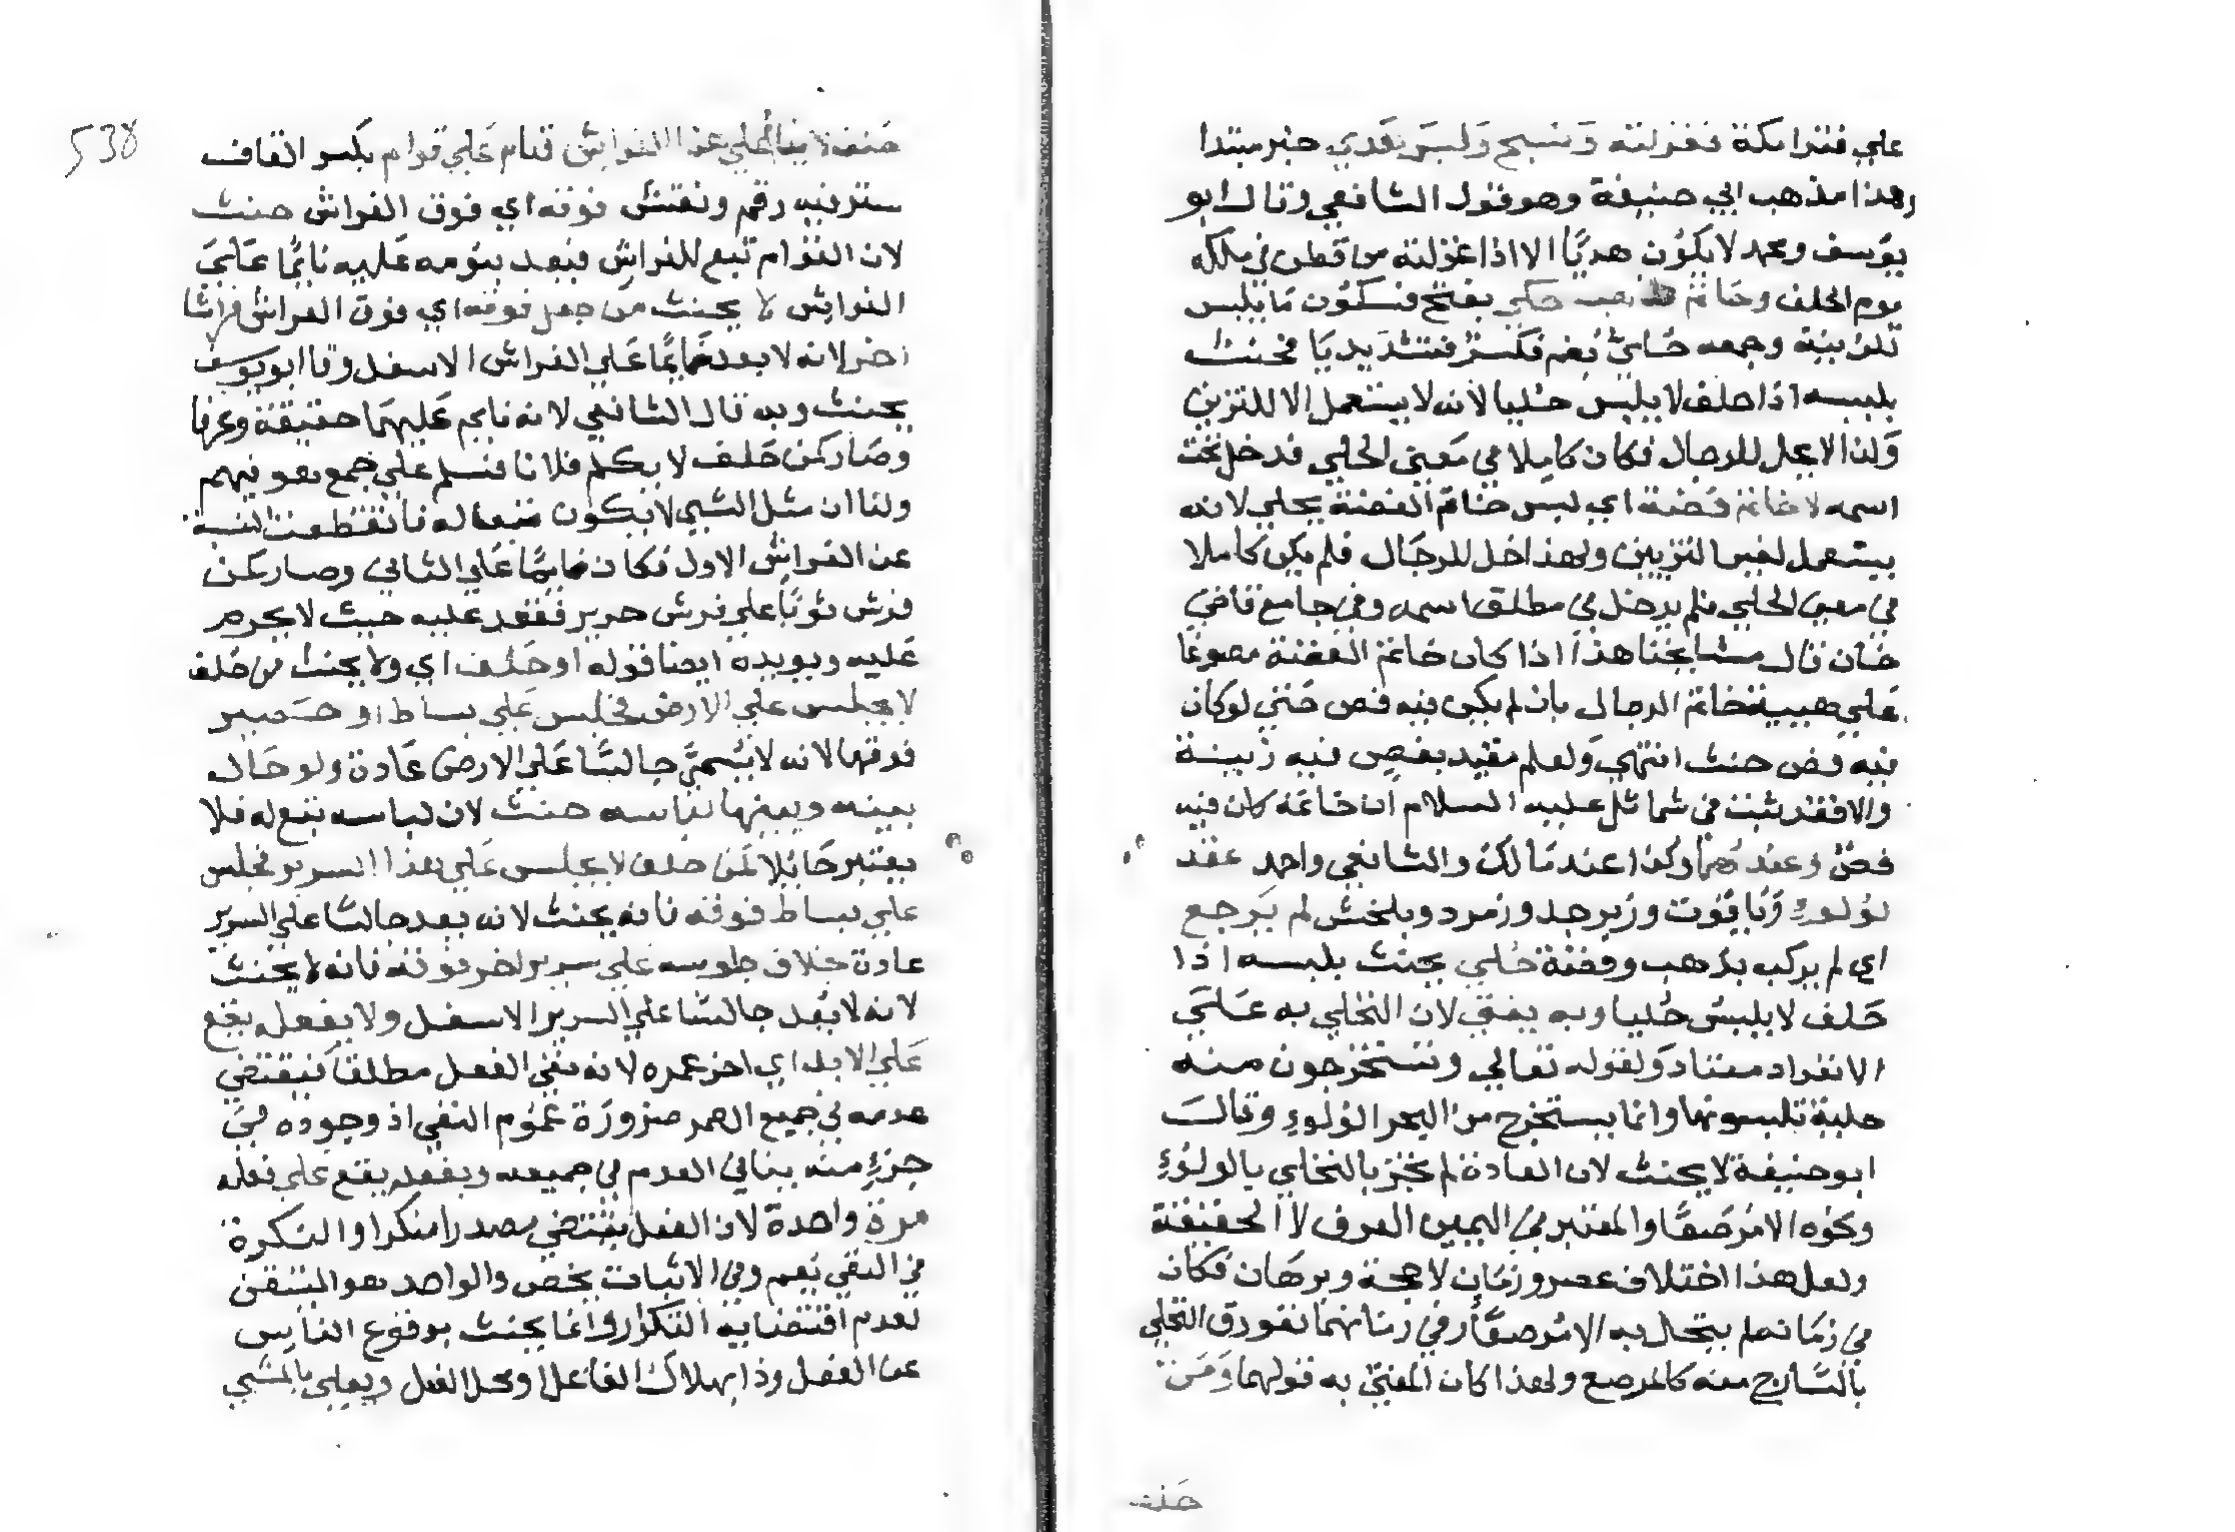 علي فتراكة فغزلته ونسج ولبس نقدي خبر مبتدا
وهذا مذهب ابي حنيفة وهو قول الشافعي وقال ابو
يوسف ومحمد لا يكون هديًا الا اذا غزلته من قطن في ملكه
يوم الحلف وخاتم ذهب حلي بفتح فسكون ما يلبس
للزينة وجمعه حلي بضم فكسر فتشديد يا فيحنث
بلبسه اذا حلف لا يلبس حليا لانه لا يستعمل الا للتزين
ولذا لا يحل للرجال فكان كاملا في معني الحلي فدخل تحت
اسمه لا خاتم فضة اي ليس خاتم الفضة بحلي لانه
يستعمل لغير التزيين ولهذا حل للرجال فلم يكن كاملا
في معني الحلي فلم يدخل في مطلق اسمه وفي جامع قاضي
خان قال مشايخنا هذا اذا كان خاتم الفضة مصوغا
علي هيية خاتم الرجال بان لم يكن فيه فص حتي لو كان
فيه فص حنث انتهي ولعله مقيد بفص فيه زينة
والا فقد ثبت في شمائل عليه السلام ان خاتمه كان فيه
فص وعندهما وكذا عند مالك والشافعي واحمد عقد
لؤلوء وياقوت وزبرجد وزمرد وبلخش لم يرجع
اي لم يركب بذهب وفضة حلي يحنث بلبسه اذا
حلف لا يلبس حليا وبه يفتي لان التحلي به علي
الانفراد معتاد ولقوله تعالي وتستخرجون منه
حلية تلبسونها وانما يستخرج من البحر اللولوء وقال
ابو حنيفة لا يحنث لان العادة لم تجز بالتحلي بالولوء
ونحوه الا مرصعًا والمعتبر في اليمين العرف لا الحقيقة
ولعل هذا اختلاف عصر وزمان لا حجة وبرهان فكان
في زمانه لم يتحل به الا مرصعًا وفي زمانهما تفورق التحلي
بالساذج منه كالمرصع ولهذا كان المفتي به قولهما ومن
حلف
538
حلف لا ينام علي هذا الفراش فنام علي قرام بكسر القاف
ستر فيه رقم ونقش فوقه اي فوق الفراش حنث
لان القرام تبع للفراش فيعد بنومه عليه نائمًا علي
الفراش لا يحنث من جعل فوقه اي فوق الفراش فراشا
اخر لانه لا يعد نايمًا علي الفراش الاسفل وقا ابو يوسف
يحنث وبه قال الشافعي لانه نايم عليهما حقيقة وعرفا
وصار كمن حلف لا يكلم فلانا فسلم علي جمع هو فيهم
ولنا ان مثل الشي لا يكون متبعا له فانقطعت النسبة
عن الفراش الاول فكان نايمًا علي الثاني وصار كمن
فرش ثوبًا علي فرش حرير فقعد عليه حيث لا يحرم
عليه ويويده ايضا قوله او حلف اي ولا يحنث من حلف
لا يجلس علي الارض فجلس علي بساط او حصير
فوقها لانه لا يسمي جالسًا علي الارض عادة ولو حال
بينه وبينها لباسه حنث لان لباسه تبع له فلا
يعتبر حائلا كمن حلف لا يجلس علي هذا السرير فجلس
علي بساط فوقه فانه يحنث لانه يعد جالسًا علي السرير
عادة خلاف جلوسه علي سرير اخر فوقه فانه لا يحنث
لانه لا يعد جالسًا علي السرير الاسفل ولا يفعله يقع
علي الابد اي اخر عمره لانه نفي الفعل مطلقا فيقتضي
عدمه في جميع العمر ضرورة عموم النفي اذ وجوده في
جزء منه ينافي العدم في جميعه ويفعله يقع علي فعله
مرة واحدة لان الفعل يقتضي مصدرا منكرا والنكرة
في النفي تعم وفي الاثبات تخص والواحد هو المتيقن
لعدم اقتضايه التكرار وانما يحنث بوقوع الياس
عن الفعل وذا بهلاك الفاعل او محل الفعل ويعلي بالمشي